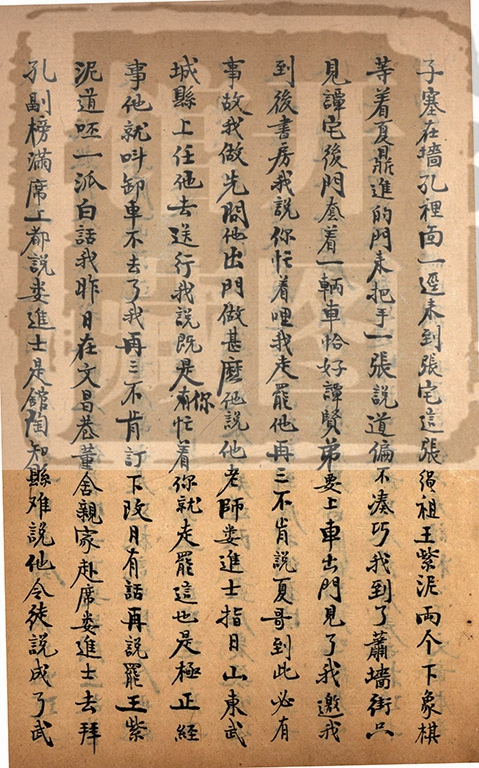 子塞在墻孔裡面一逕来到張宅這張繩祖王紫泥両个下象棋
等着夏鼎進的門来把手一張說道偏不凑巧我到了蕭墻街只
見譚宅後門套着一輌車恰好譚賢弟要上車出門見了我邀我
到後書房我說你忙着哩我走罷他再三不肯說夏哥到此必有
事故我做先問他出門做甚麽他說他老師婁進士指日山東武
城縣上任他去送行我說既是你有忙着你就走罷這也是極正経
事他就叫卸車不去了我再三不肯訂下改日有話再說罷王紫
泥道呸一派白話我昨日在文昌巷董舍親家赴席婁進士去拜
孔副榜滿席上都說婁進士是館陶知縣难說他令徒説成了武